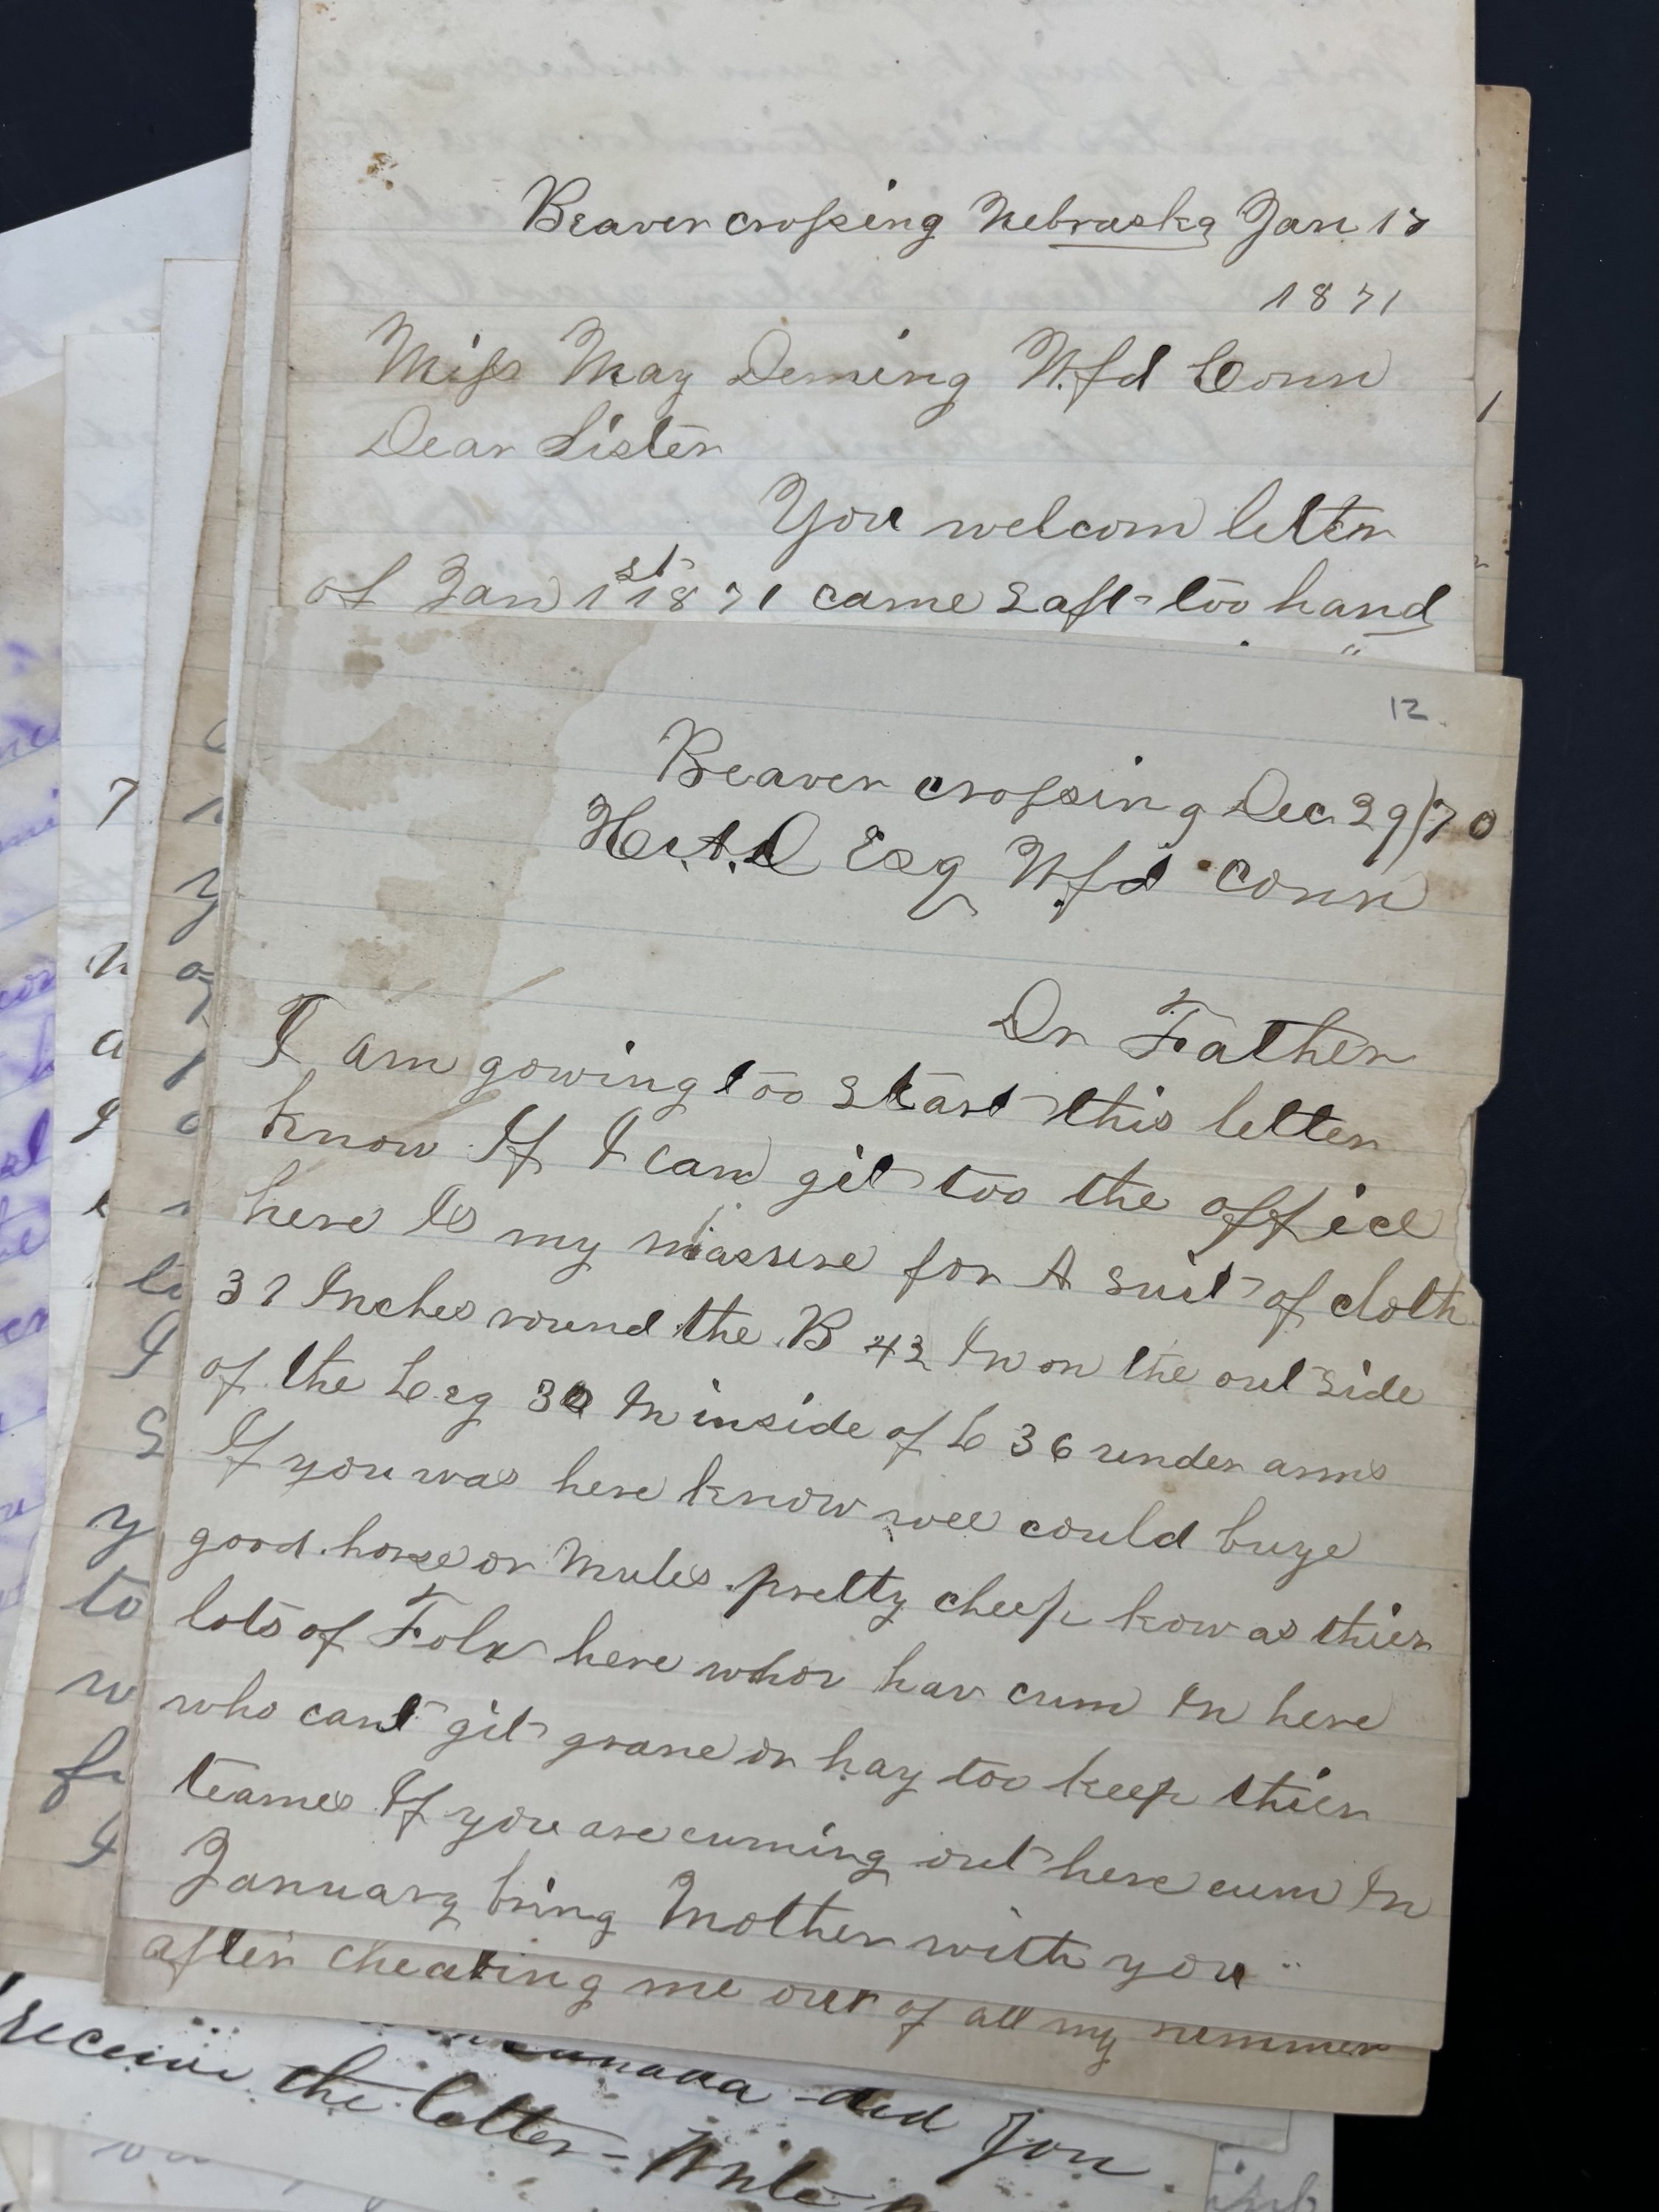 Beaver crossing Nebraska Jan 17
1871
Miss May Deming W.fd Conn
Dear Sister
You welcom letter
of Jan 1st 1871 came safe too hand
12.
Beaver crossing Dec 29/70
Esq W.fd conn
Dr Father
I am gowing too start this letter
know If I can git too the office
here Is my measure for A suit of cloth
Inches round the B 42 In on the out side
of the Leg In inside of L 36 under arms
If you was here know wee could buye
good horse or Mules pretty cheep kow as thier
lots of Folk here whor hav cum In here
who cant git grane or hay too keep thier
teames If you are cuming out here cum In
January bring Mother with you
after cheating me out of all my summer
did you
receive the letter - Write